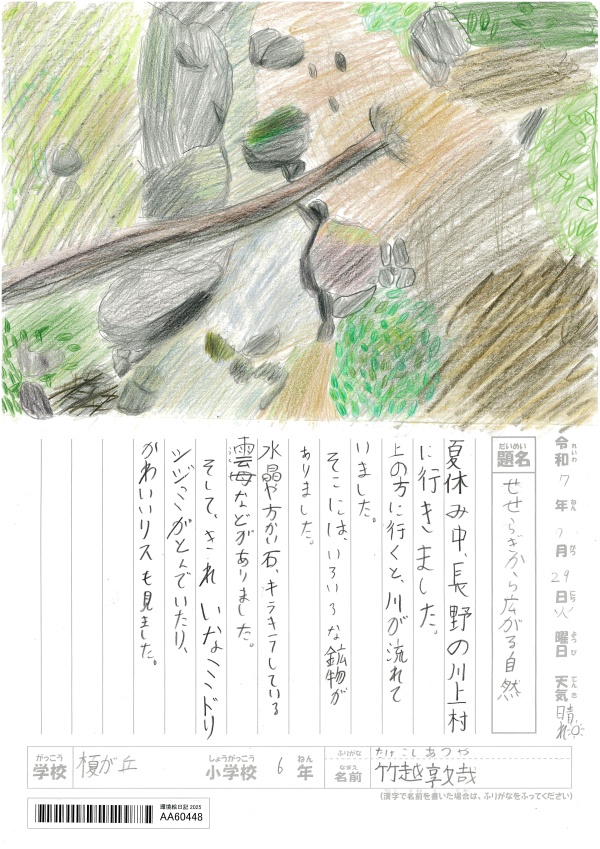 令和7年7月29日火曜日 天気晴れ
れいわ ねん がつ にち ようび てんき
だいめい
題名 せせらぎから広がる自然
夏休み中、長野の川上村
に行きました。
上の方に行くと、川が流れて
いました。
そこには、いろいろな鉱物が
ありました。
水晶や方かい石、キラキラしている
雲母などがありました。
そして、きれいなミドリ
シジミがとんでいたり、
かわいいリスも見ました。
がっこう しょうがっこう ねん
学校 榎が丘 小学校 6年
ふりがな たけこしあつや
なまえ
名前 竹越敦哉
(漢字で名前を書いた場合は、ふりがなをふってください)
環境絵日記 2025
AA60448